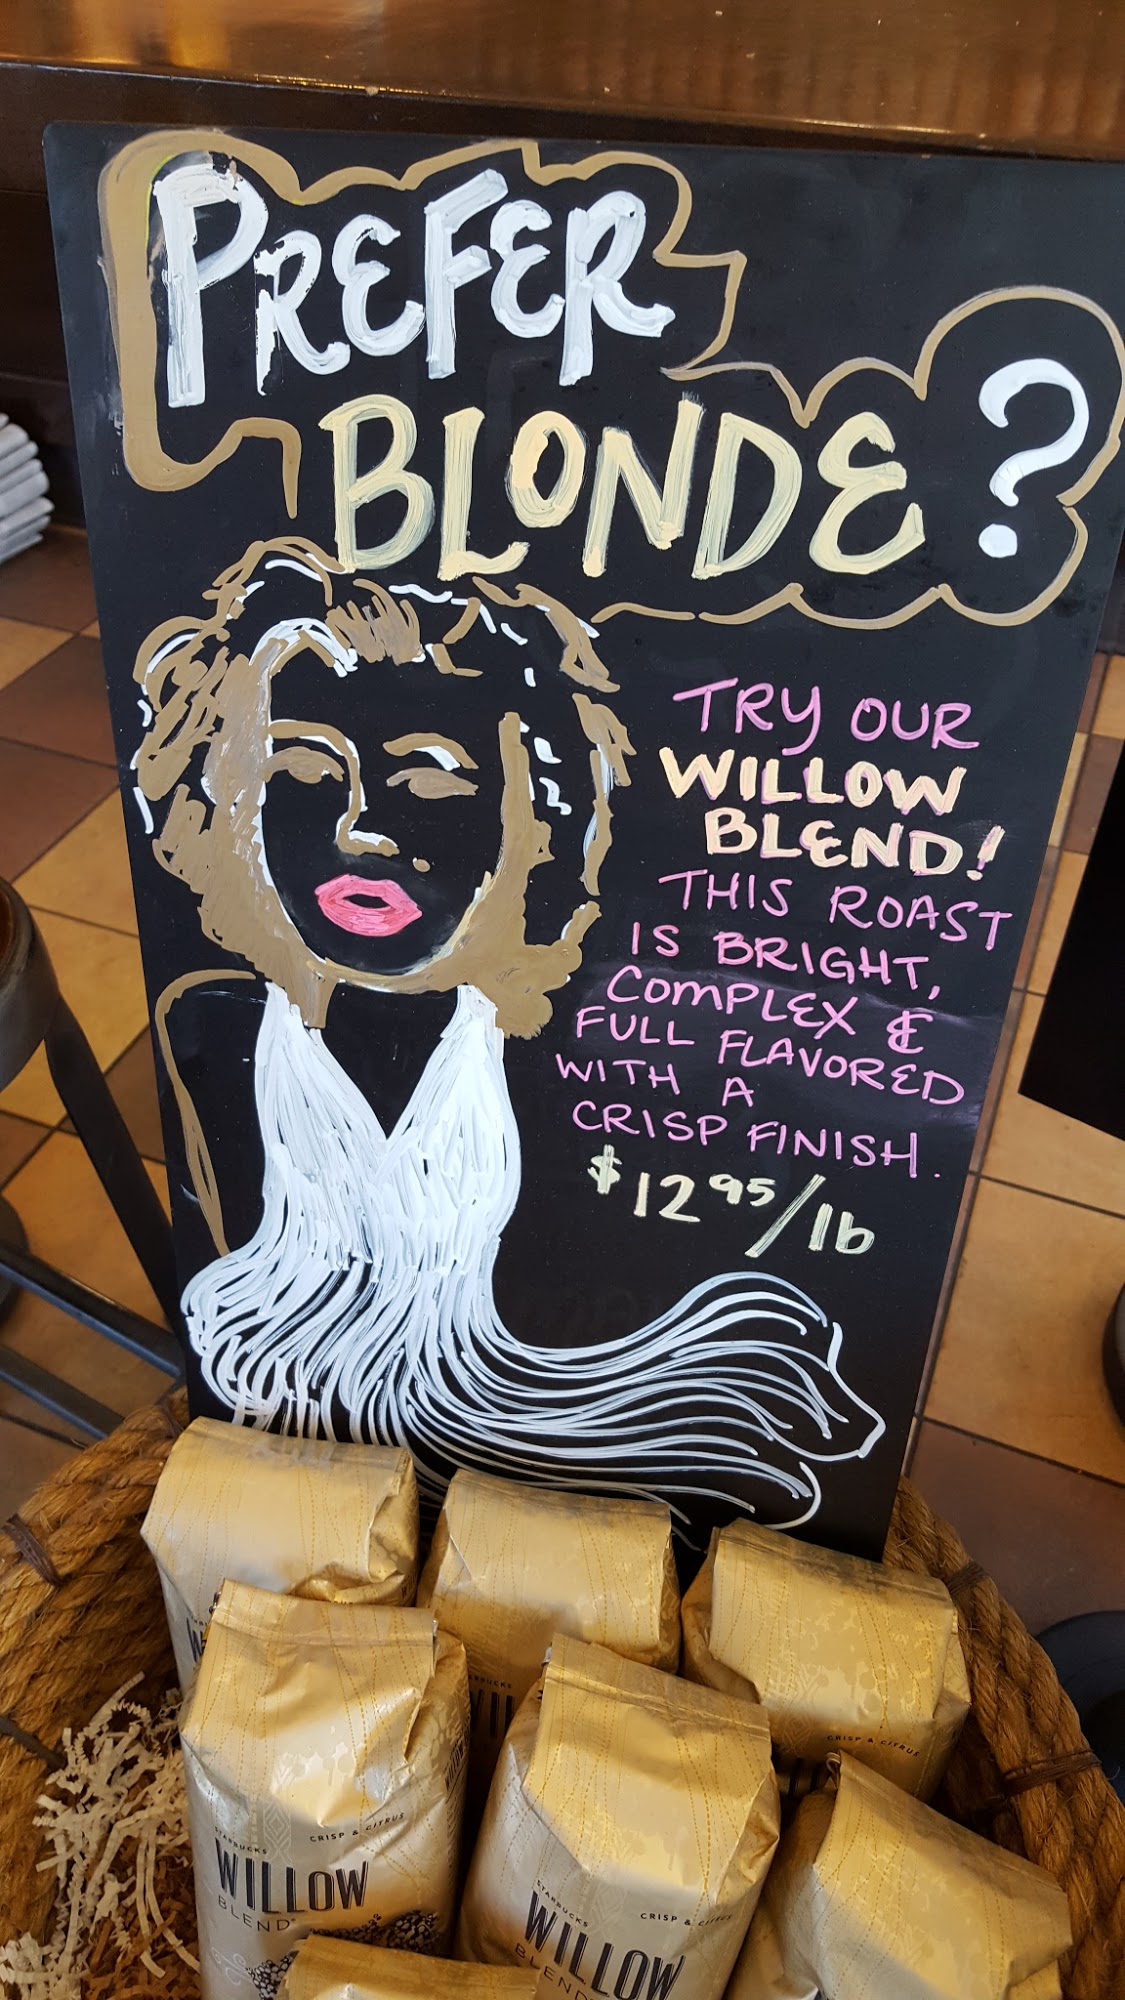 PREFER
BLONDE?
TRY OUR
WILLOW
BLEND!
THIS ROAST
IS BRIGHT,
COMPLEX &
FULL FLAVORED
WITH A
CRISP FINISH.
$12 95/lb
CRISP & CITRUS
STARBUCKS
CRISP & CITRUS
WILLOW
BLEND
STARBUCKS
CRISP & CITRUS
WILLOW
BLEND